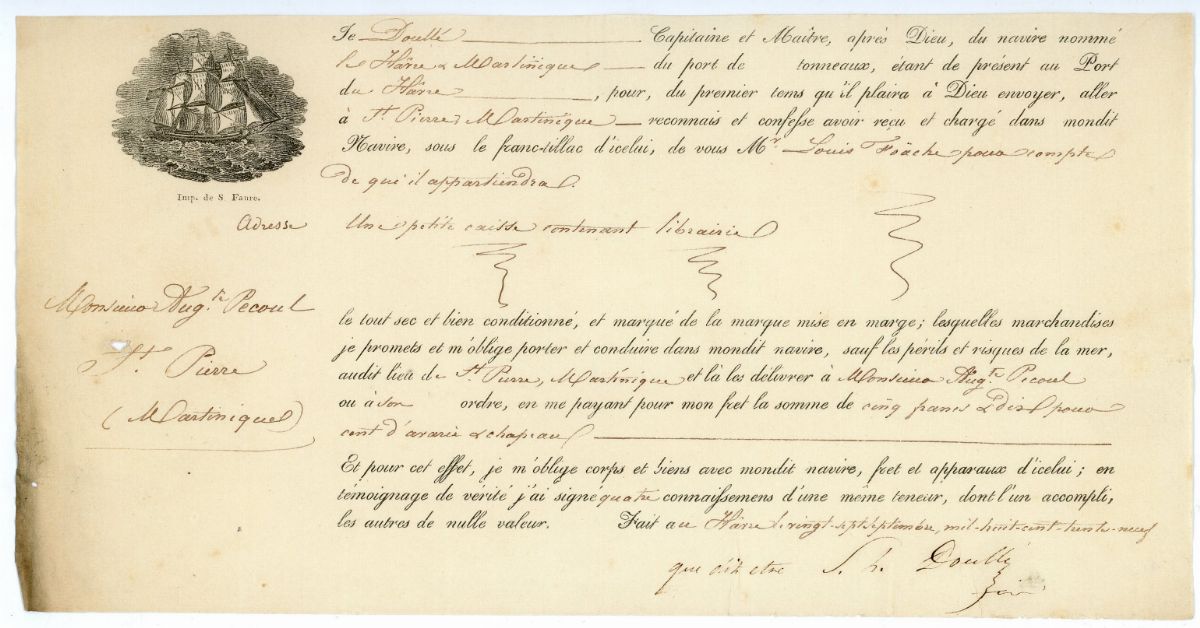 Je Doullé Capitaine et Maître, après Dieu, du navire nommé
le Hâvre & Martinique du port de tonneaux, étant de présent au Port
du Hâvre, pour, du premier tems qu'il plaira à Dieu envoyer, aller
à St. Pierre Martinique reconnais et confesse avoir reçu et chargé dans mondit
Navire, sous le franc-tillac d'icelui, de vous Mr. Louis Foäche pour compte
de qui il appartiendra.
Imp. de S. Faure.
Adresse
Une petite caisse contenant librairie
Monsieur Augte. Pecoul
St. Pierre
(Martinique)
le tout sec et bien conditionné, et marqué de la marque mise en marge; lesquelles marchandises
je promets et m'oblige porter et conduire dans mondit navire, sauf les périls et risques de la mer,
audit lieu de St. Pierre, Martinique et là les délivrer à Monsieur Augte. Pecoul
ou à son ordre, en me payant pour mon fret la somme de cinq francs & dix pour
cent d'avarie & chapeau
Et pour cet effet, je m'oblige corps et biens avec mondit navire, fret et apparaux d'icelui; en
témoignage de vérité j'ai signé quatre connaissemens d'une même teneur, dont l'un accompli,
les autres de nulle valeur. Fait au Hâvre le vingt-sept septembre, mil-huit-cent-trente-neuf
que dit être Doullé